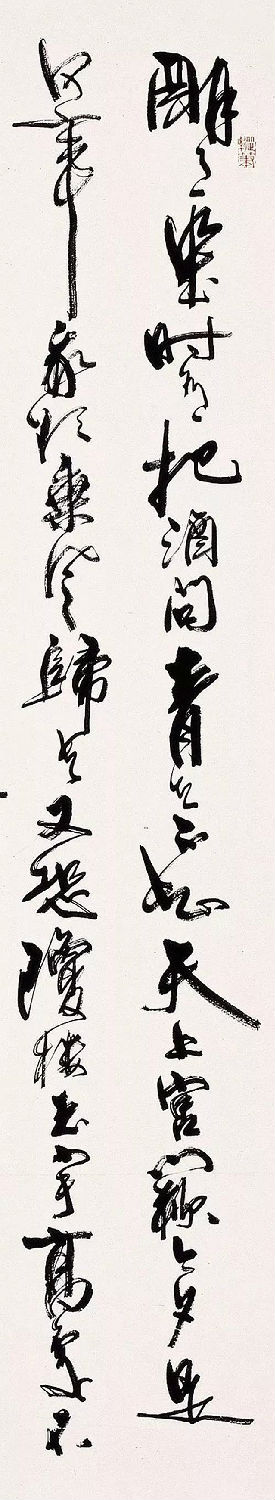 明月幾时有把酒問青天不知天上宮闕今夕是
何年我欲乘風歸去又恐瓊樓玉宇高處不